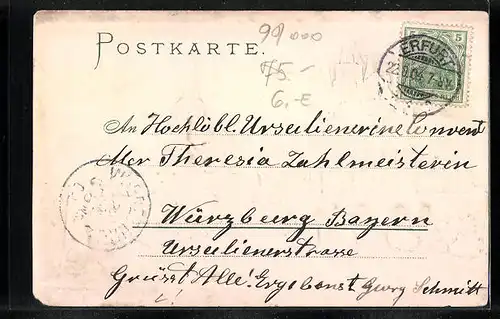 99000
POSTKARTE.
75.-
6.-E
5 5
ERFURT
An Hochlöbl. Ursulienerinelonvent
Mer Theresia Zahlmeisterin
Würzburg Bayern
Ursulienerstrasse
Grüsst Alle! Ergebenst Georg Schmitt